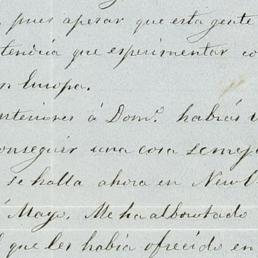 pues apesar que esta gente
tencia que esperimentar co
n Europa.
nteriores á Domº. habias
onseguir una cosa semej
se halla ahora en New
Mayo. Me ha alborotado
que les habia ofrecido en